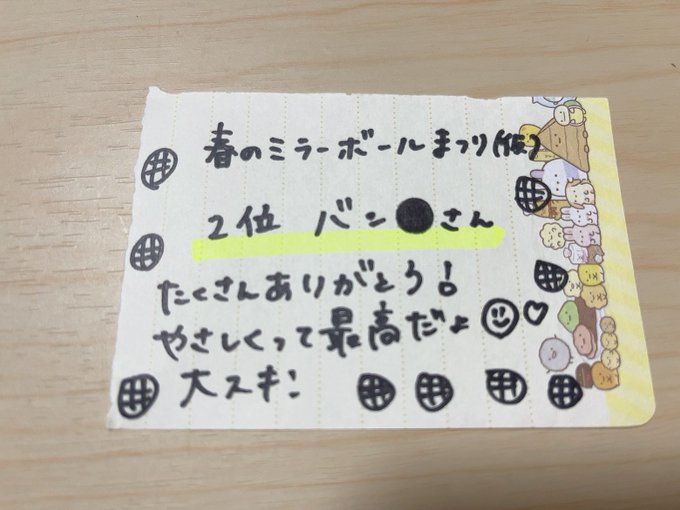 春のミラーボールまつり(仮)
2位 バン●さん
たくさんありがとう!
やさしくって最高だよ
大スキ!